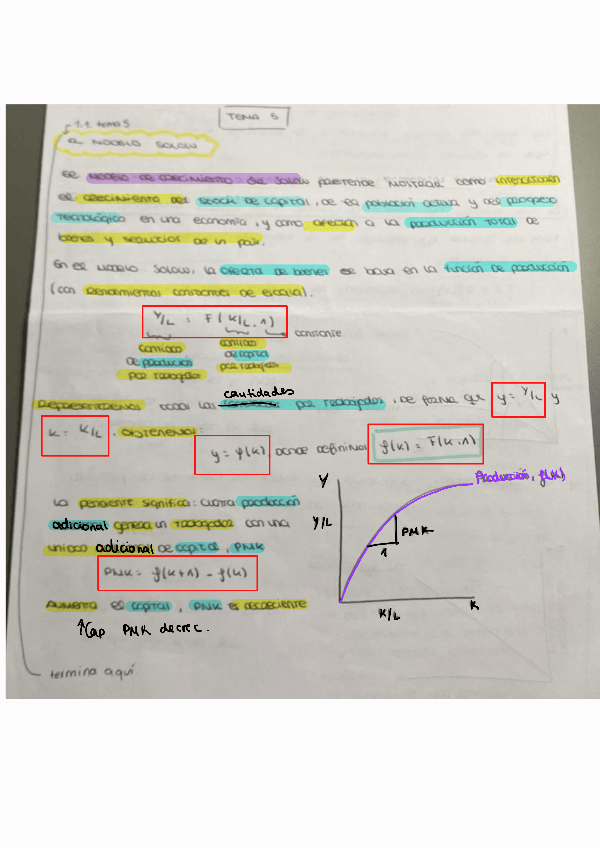 1.1. tema 5
TEMA 5
EL MODELO SOLOW
EL MODELO DE CRECIMIENTO DEL SOLOW PRETENDE MOSTRAR COMO INTERACTÚAN
EL CRECIMIENTO DEL STOCK DE CAPITAL, DE LA POBLACIÓN ACTIVA Y DEL PROGRESO
TECNOLÓGICO EN UNA ECONOMÍA, Y COMO AFECTAN A LA PRODUCCIÓN TOTAL DE
BIENES Y SERVICIOS DE UN PAÍS.
EN EL MODELO SOLOW, LA OFERTA DE BIENES SE BASA EN LA FUNCIÓN DE PRODUCCIÓN
(CON RENDIMIENTOS CONSTANTES DE ESCALA).
Y/L = F(K/L, 1) constante
CANTIDAD CANTIDAD
DE PRODUCCIÓN DE CAPITAL
POR TRABAJADOR POR TRABAJADOR
REPRESENTAMOS TODAS LAS cantidades POR TRABAJADOR, DE FORMA QUE y = Y/L y
k = K/L, OBTENEMOS:
y = f(k), DONDE DEFINIMOS f(k) = F(k,1)
LA PENDIENTE SIGNIFICA: CUANTA PRODUCCIÓN
adicional GENERA UN TRABAJADOR CON UNA
UNIDAD adicional DE CAPITAL, PMK
PMK = f(k+1) - f(k)
AUMENTA EL CAPITAL, PMK ES DECRECIENTE
↑Cap PMK decrec.
termina aquí
Y
Y/L
Producción, f(k)
PMK
1
K/L
K